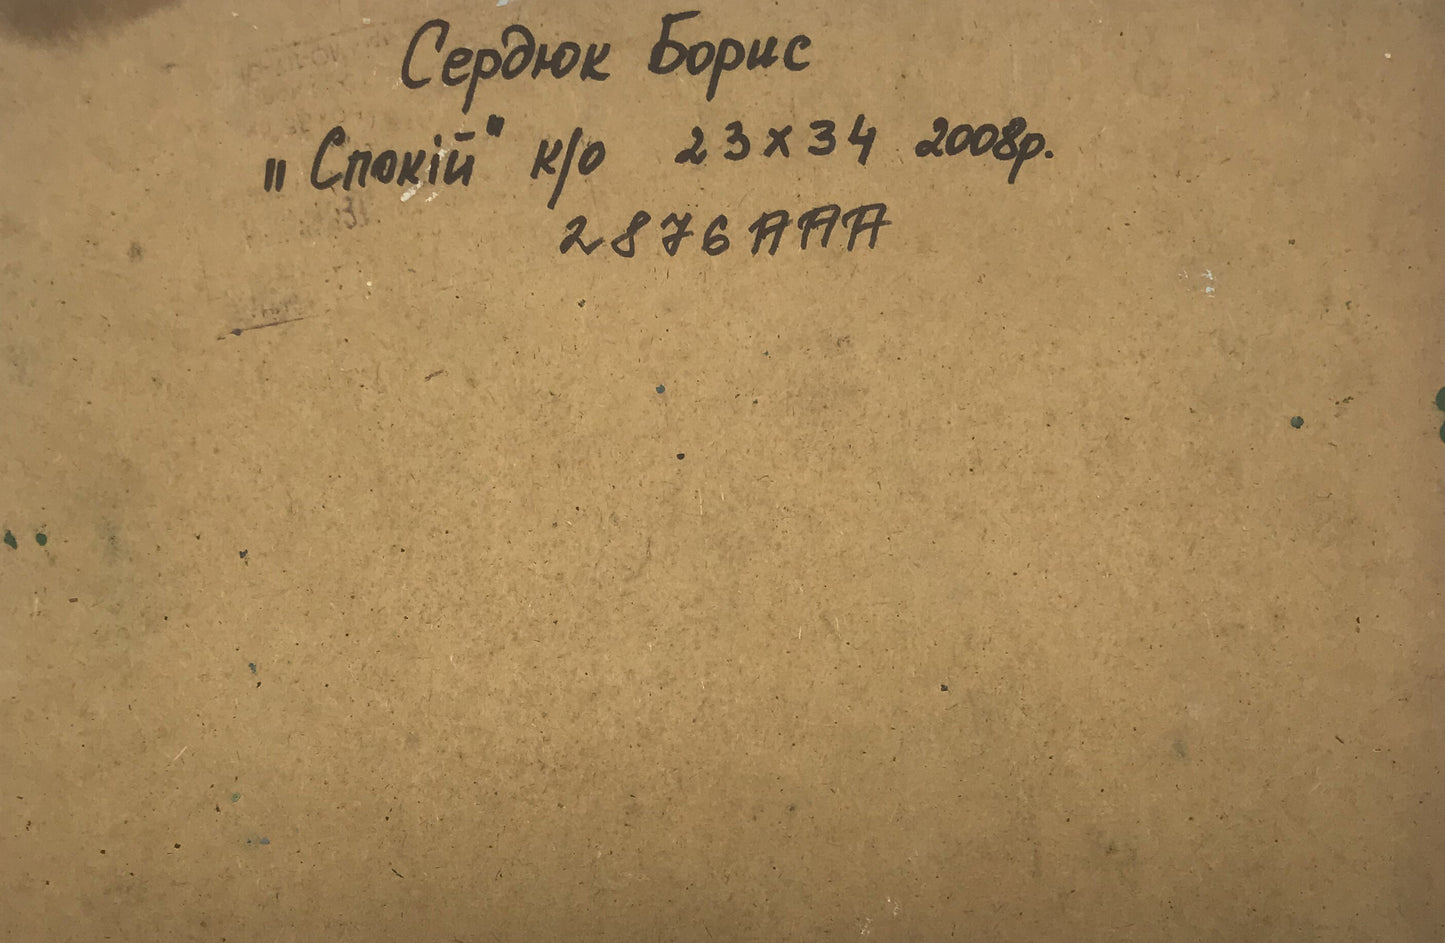 Сердюк Борис
„Спокій" к/о 23x34 2008р.
2876 AAA